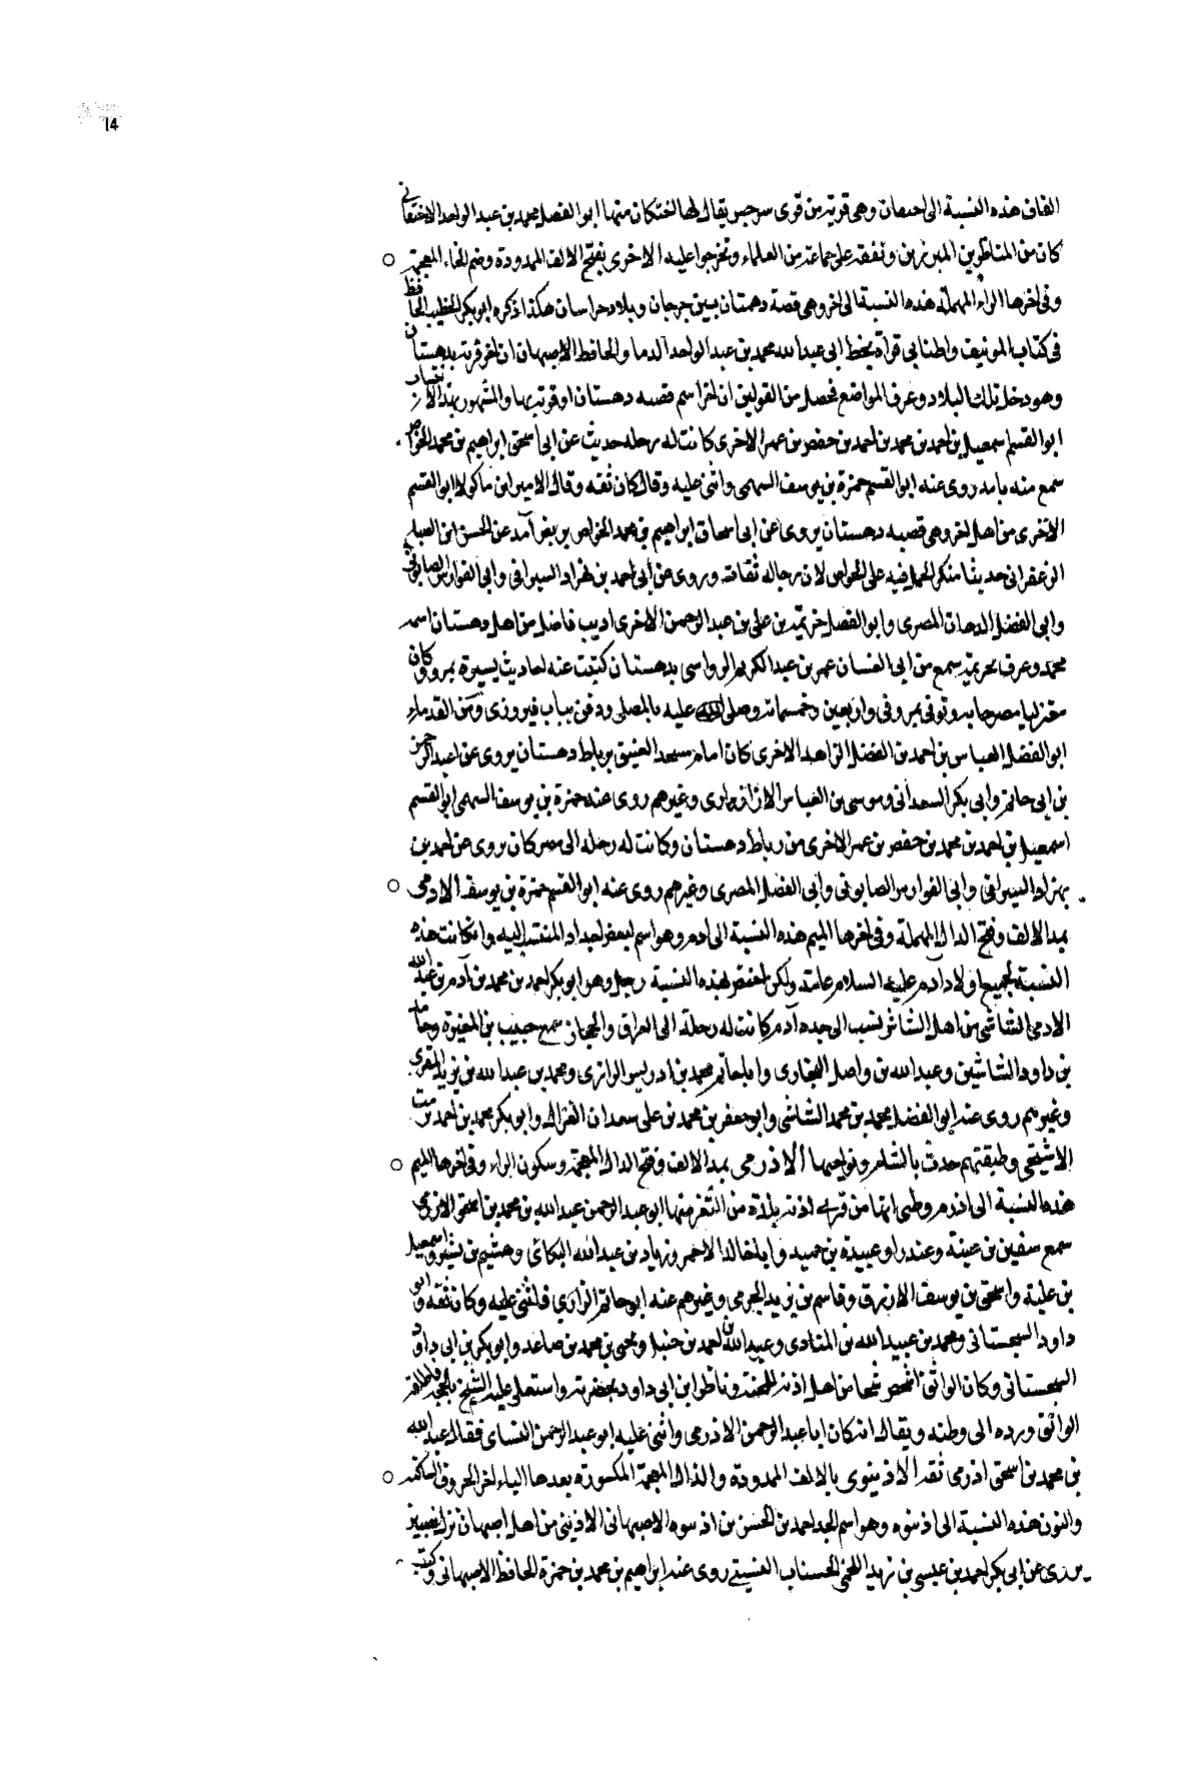 14
القاف هذه النسبة الى اختقان وهى قرية من قرى سرخس يقال لها اختكان منها ابو الفضل محمد بن عبد الواحد الاختقانى
كان من المناظرين المبرزين وتفقه على جماعة من العلماء وتخرجوا عليه الاخرى بفتح الالف الممدودة وضم الخاء المعجمة
وفى اخرها الراء المهملة هذه النسبة الى اخر وهى قصبة دهستان بين جرجان وبلاد خراسان هكذا ذكره ابو بكر الخطيب الحافظ
فى كتاب المؤتنف واظنانى قرأت بخط ابى عبد الله محمد بن عبد الواحد الدقاق الحافظ الاصبهانى ان اخر قرية بدهستان
وهو دخل تلك البلاد وعرف المواضع فحصل من القولين ان اخر اسم قصبه دهستان او قرية بها والمشهور بهذا الانتساب
ابو القسم اسمعيل بن احمد بن محمد بن احمد بن حفص بن عمر الاخرى كانت له رحله حديث عن ابى اسحق ابراهيم بن محمد الخواص
سمع منه بامد روى عنه ابو القسم حمزة بن يوسف السهمى واثنى عليه وقال كان ثقه وقال الامير ابن ماكولا ابو القسم
الاخرى من اهل اخر وهى قصبه دهستان يروى عن ابى اسحاق ابراهيم بن محمد الخواص بن بغر آمد عن الحسن ابن الصباح
الزعفرانى حديثا منكر الحمل فيه على الخواص لان رجاله ثقات وروى عن ابى احمد بن بهزاد السيرافى وابى الفوارس الصابونى
وابى الفضل الدهان المصرى وابو الفضل خزيمة بن على بن عبد الرحمن الاخرى اديب فاضل من اهل دهستان اسمه
محمد وعرف بخزيمة سمع من ابى الفتيان عمر بن عبد الكريم الرواسى بدهستان كتبت عنه احاديث يسيرة بمرو وكان
معتزليا وتوفى بمرو فى واربعين وخمسمائة وصلى الله عليه بالمصلى ودفن بباب فيروزى ومن القدماء
ابو الفضل العباس بن احمد بن الفضل الزاهد الاخرى كان امام مسجد العتيق برباط دهستان يروى عن عبد الرحمن
بن ابى حاتم وابى بكر السعدانى وموسى بن العباس الازاذيارى وغيرهم روى عنه حمزة بن يوسف السهمى ابو القسم
اسمعيل بن احمد بن محمد بن حفص بن عمر الاخرى من رباط دهستان وكانت له رحله الى مصر كان يروى عن احمد بن
بهزاد السيرافى وابى الفوارس الصابونى وابى الفضل المصرى وغيرهم روى عنه ابو القسم حمزة بن يوسف الادمى
بمد الالف وفتح الدال المهملة وفى اخرها الميم هذه النسبة الى ادم وهو اسم لبعض اجداد المنتسب اليه وان كانت هذه
النسبة لجميع اولاد آدم عليه السلام عامة ولكن اختص بهذه النسبة رجل وهو ابو بكر احمد بن محمد بن آدم بن عبد الله
الادمى الشاشى من اهل الشاش نسب الى جده آدم كانت له رحلة الى العراق والحجاز سمع حبيب بن المغيرة وحامد
بن داود الشاشين وعبد الله بن واصل البخارى وابا حاتم محمد بن ادريس الرازى ومحمد بن عبد الله بن يزيد المقرى
وغيرهم روى عنه ابو الفضل محمد بن محمد الشاشى وابو جعفر بن محمد بن على سعدان القزاز وابو بكر محمد بن احمد بن مت
الاشتيخنى وطبقتهم حدث بالشام ونواحيها الاذرمى بمد الالف وفتح الذال المعجمة وسكون الراء وفى اخرها الميم
هذه النسبة الى اذرم وظنى انها من قرى اذنه بلدة من الثغر منها ابو عبد الرحمن عبد الله بن محمد بن اسحق الاذرمى
سمع سفين بن عيينة وغندر او عبيدة بن حميد وابا خالد الاحمر وزياد بن عبد الله البكائى وهشيم بن بشير واسمعيل
بن علية واسحق بن يوسف الازرق وقاسم بن يزيد الجرمى وغيرهم عنه ابو حاتم الرازى فاثنى عليه وكان ثقة وابى
داود السجستانى ومحمد بن عبيد الله بن المنادى وعبد الله بن احمد بن حنبل ويحيى بن محمد بن صاعد وابو بكر بن ابى داود
السجستانى وكان الواثق اشخص شيخا من اهل اذنه للمحنة وناظر ابن ابى داود بحضرته واستعلى عليه الشيخ بالحجة فاطلقه
الواثق ورده الى وطنه ويقال انه كان ابا عبد الرحمن الاذرمى واثنى عليه ابو عبد الرحمن النساى فقال عبد الله
بن محمد بن اسحق اذرمى ثقة الاذينوى بالالف الممدودة والذال المعجمة المكسورة بعدها الياء اخر الحروف الساكنه
والنون هذه النسبة الى اذينوه وهو اسم لجد احمد بن الحسن بن اذينوه الاصبهانى الاذينى من اهل اصبهان نزل نصيبين
يروى عن ابى بكر احمد بن عيسى بن زيد اللخمى الخشاب التنيسى روى عنه ابراهيم بن محمد بن حمزة الحافظ الاصبهانى وكتب